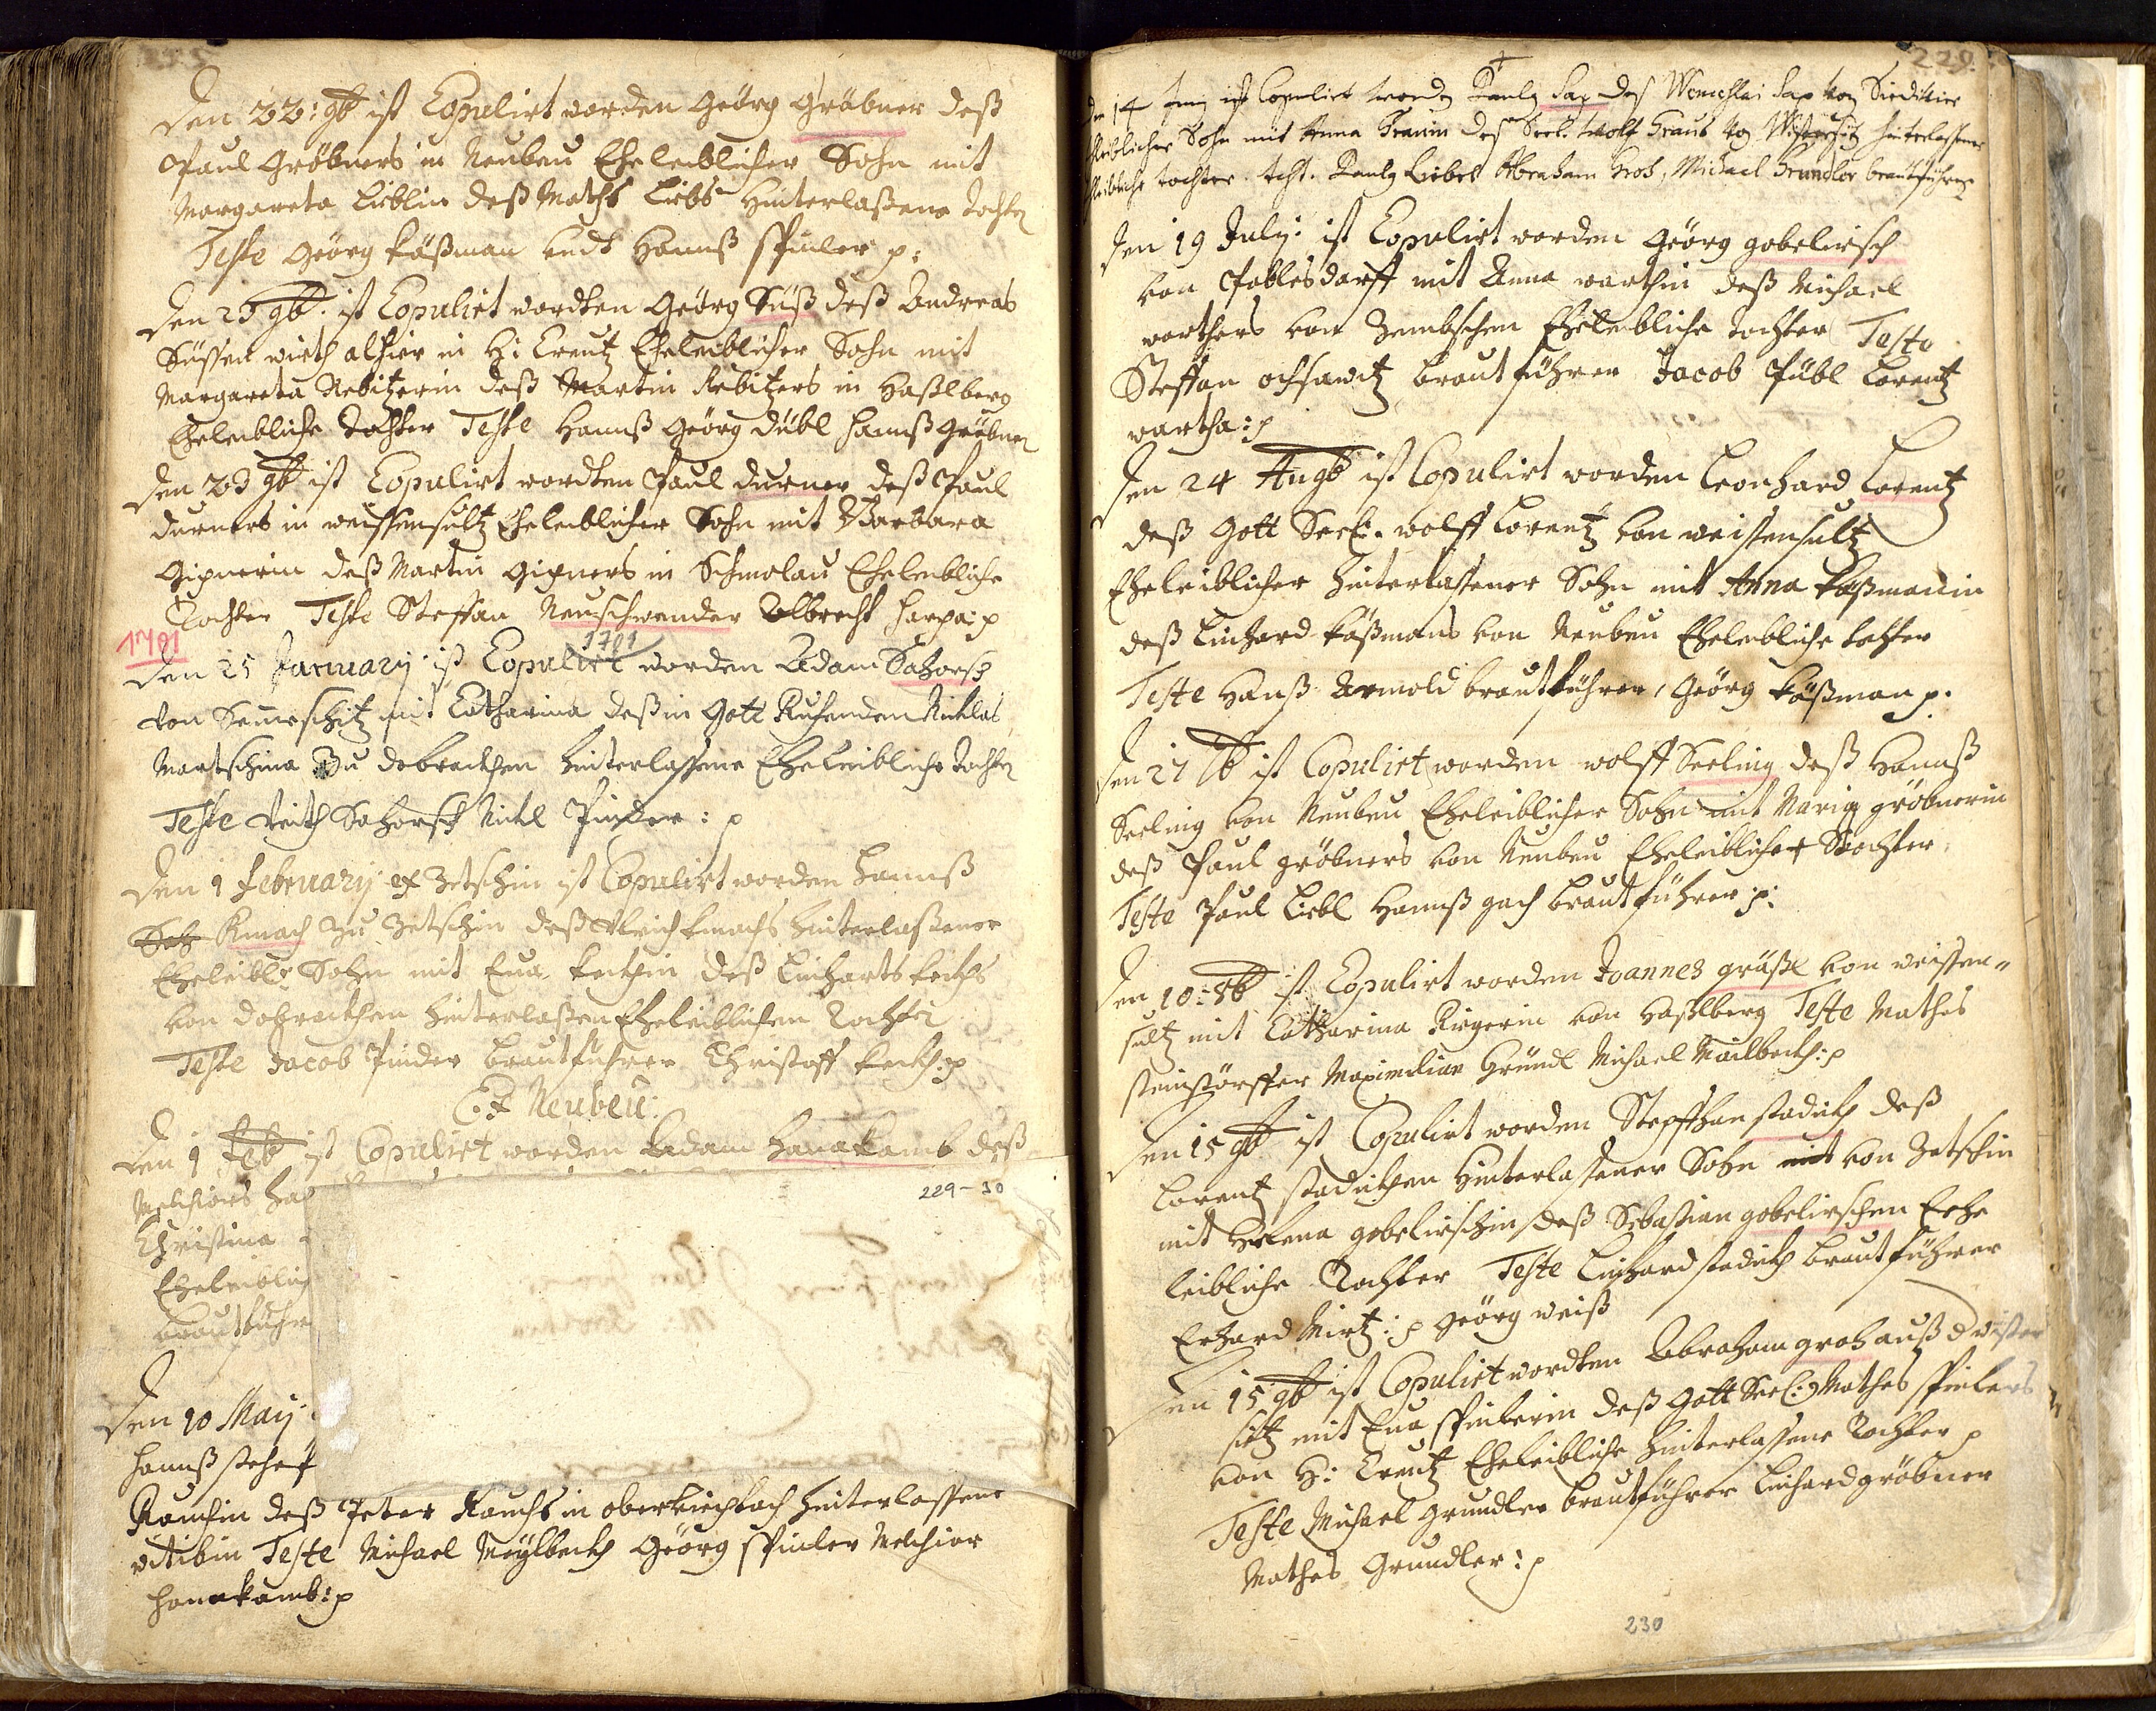 Den 22: 9b ist Copulirt worden Geörg Gröbner deß
Paul Gröbners in Neubeu Eheleiblicher Sohn mit
Margareta Lieblin deß Maths Liebs Hinterlaßene Tochter
Teste Geörg käßman undt Hannß spinler p:
Den 23 9b. ist Copulirt wordten Geörg Süß deß Andreas
Süssen wirth alhier in H: Creutz Eheleiblicher Sohn mit
Margareta Rebitzerin deß Martin Rebitzers in Haßlberg
Eheleibliche Tochter Teste Hannß Geörg Dübl Hannß Gröbner
Den 23 9b ist Copulirt wordten Paul durner deß Paul
durners in weissensultz Eheleiblicher Sohn mit Barbara
Gignerin deß Martin Gigners in Schmolau Eheleibliche
Tochter Teste Steffan Neuschwender Albrecht harpa: p
1701
1701
Den 25 Januarij ist Copulirt worden Adam Sahorsch
von Semeschitz mit Catharina deß in Gott Ruhenden Niklas
Martschina Zu dobrackhen hinterlassene Eheleibliche Tochter
Teste Veith Sahorsch Nikl Pinder: p
Den 1 februarij ex Zetschin ist Copulirt worden Hannß
Kmach Zu Zetschin deß kmachs hinterlaßener
Eheleibl: Sohn mit Eua keckhin deß Linharts keckhs
von dobrackhen hinterlaßen Eheleiblichen Tochter
Teste Jacob Pinder brautführer Christoff keckh: p
Ex Neubeu:
Den 1 Feb ist Copulirt worden Adam hanakamb deß
Melchiors ha
Christina
Eheleiblich
brautführ
229-30
Den 10 Maij
hannß
Rauchin deß Peter Rauchs in oberkirchbach hinterlassene
witibin Teste Michael Meÿlbeckh Geörg spinler Melchior
hanakamb: p
229.
14 Junij ist Copulirt worden Paulg Sax des Wenzlai Sax von
eheleiblicher Sohn mit Anna des Seel. Wolf Kraus von hinterlassene
eheleibliche tochter. Paulg Liebes Abraham Groh, Michael Grundlor brautführer
Den 19 Julij: ist Copulirt worden Geörg gobelirsch
von Pablesdorff mit Anna warthin deß Michael
warthers von Zembschen Eheleibliche Tochter Teste
Steffan ochsawitz brautführer Jacob Pübl Lorentz
wartha: p
Den 24 Augb ist Copulirt worden Leonhard Lorentz
deß Gott Seel: wolff Lorentz von weissensultz
Eheleiblicher hinterlassener Sohn mit Anna käßmanin
deß Linhard käßmans von Neubeu Eheleibliche tochter
Teste Hanß Armold brautführer, Geörg käßman p.
Den 27 7b ist Copulirt worden wolff Seeling deß Hannß
Seeling von Neubeu Eheleiblicher Sohn mit Maria gröbnerin
deß Paul gröbners von Neubeu Eheleiblicher Tochter.
Teste Paul Liebl Hannß gach brautführer p:
Den 10: 8b ist Copulirt worden Joannes gräßl von weissen-
sultz mit Catharina Rirgerin von Haßlberg Teste Mathes
steinstörffer Maximilian Gründl Michael Mailbeckh: p
Den 15 9b ist Copulirt worden Steffhan stadickh deß
Lorentz stadickhen Hinterlassener Sohn von Zetschin
mit Helena gobelirschin deß Sebastian gobelirschen Eehe
leibliche Tochter Teste Linhard stadickh brautführer
Erhard Wirtz: p Geörg weiß
Den 15 9b ist Copulirt wordten Abraham groh auß
sitz mit Eua spinlerin deß Gott Seel: Mathes spinlers
von H: Creutz Eheleibliche hinterlassene Tochter p
Teste Michael Grundler brautführer Linhard gröbner
Mathes Grundler: p
230